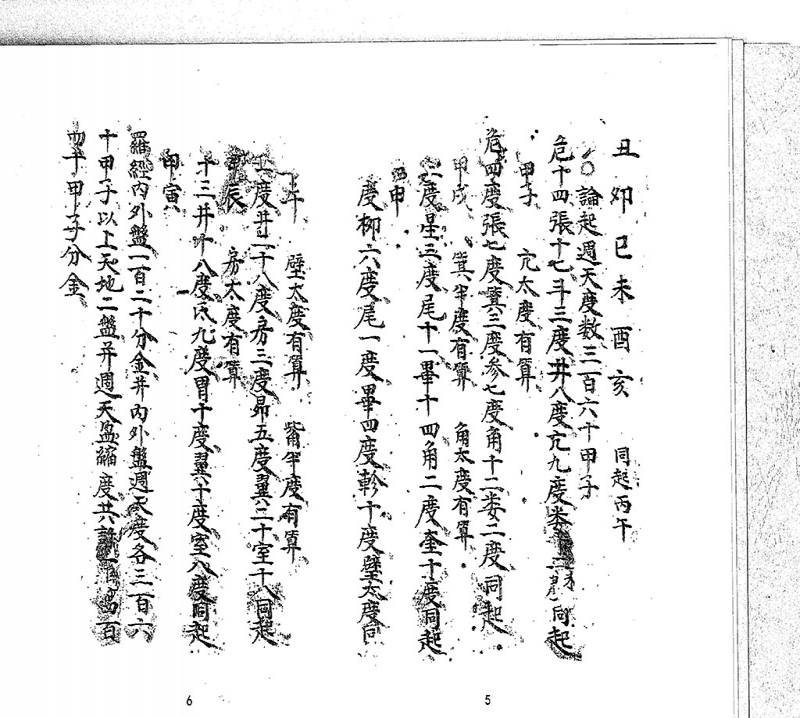 丑卯巳未酉亥 同起丙午
○論起週天度数三百六十甲子
危十四張十七斗三度井八度亢九度娄 同起
甲子 亢太度有算
危四度張七度箕三度参七度角十二娄二度同起
甲戌 箕半度有算 角太度有算
二度星三度尾十一畢十四角二度奎十度同起
申
度柳六度尾一度畢四度軫十度壁太度同
午 壁太度有算 觜半度有算
度井二十八度房三度昴五度翼二十室十八同起
甲辰 房太度有算
十三井十八度氐九度胃十度翼十度室八度同起
甲寅
羅經内外盤一百二十分金并内外盤週天度各三百六
十甲子以上天地二盤并週天盈縮度共 百
四十甲子分金
6
5